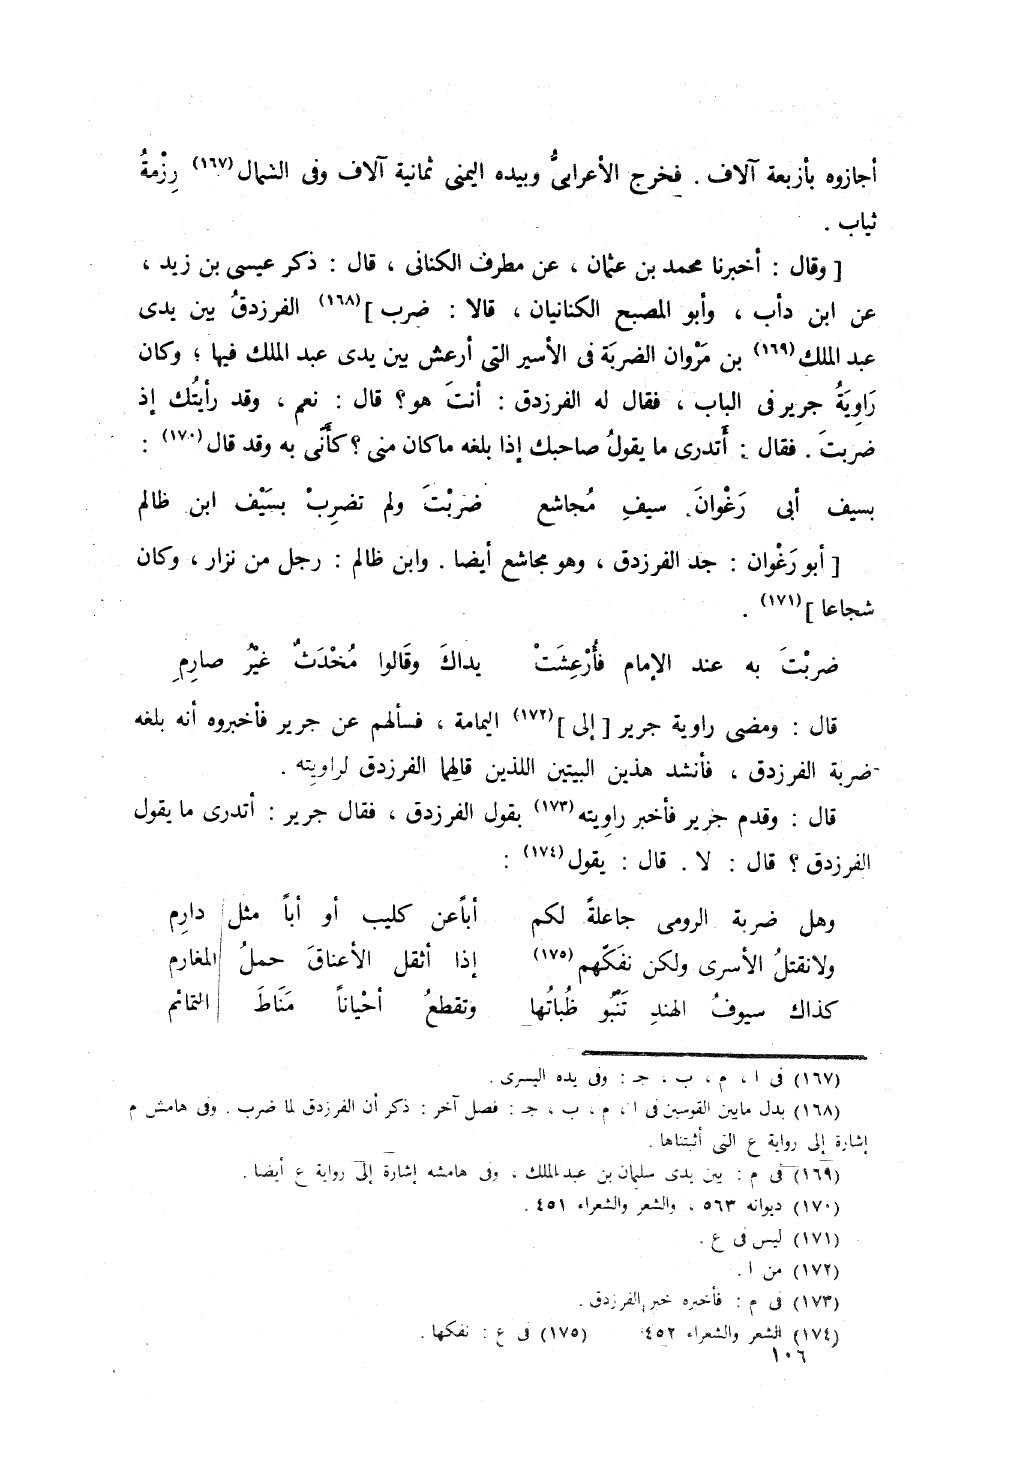 أجازوه بأربعة آلاف . فخرج الأعرابىُّ وبيده اليمنى ثمانية آلاف وفى الشمال(١٦٧) رِزْمةُ
ثياب .
[ وقال : أخبرنا محمد بن عثمان ، عن مطرف الكنانى ، قال : ذكر عيسى بن زيد ،
عن ابن دأب ، وأبو المصبع الكنانيان ، قالا : ضرب ](١٦٨) الفرزدقُ بين يدى
عبد الملك(١٦٩) بن مَرْوان الضربَة فى الأسير التى أرعش بين يدى عبد الملك فيها ؛ وكان
رَاوِيَةُ جرير فى الباب ، فقال له الفرزدق : أنتَ هو؟ قال : نعم ، وقد رأيتُك إذ
ضربتَ . فقال : أَتدرى ما يقولُ صاحبك إذا بلغه ماكان منى ؟ كأَنّى به وقد قال(١٧٠) :
بسيف أبى رَغْوانَ سيفِ مُجاشع ضربْتَ ولم تضرِبْ بسَيْف ابن ظالم
[ أبو رَغْوان : جد الفرزدق ، وهو مجاشع أيضا . وابن ظالم : رجل من نزار ، وكان
شجاعا ](١٧١) .
ضربْتَ به عند الإمام فأُرْعِشَتْ يداكَ وقَالوا مُحْدَثٌ غيْرُ صارِمِ
قال : ومضى راوية جرير [ إلى ](١٧٢) اليمامة ، فسألهم عن جرير فأخبروه أنه بلغه
ضربة الفرزدق ، فأنشد هذين البيتين اللذين قالهما الفرزدق لراويته .
قال : وقدم جرير فأخبر راويته(١٧٣) بقول الفرزدق ، فقال جرير : أتدرى ما يقول
الفرزدق ؟ قال : لا . قال : يقول(١٧٤) :
وهل ضربة الرومى جاعلةً لكم أباً عن كليب أو أباً مثل دارِم
ولانقتلُ الأسرى ولكن نفَكّهم(١٧٥) إذا أثقل الأعناقَ حملُ المغارم
كذاك سيوفُ الهندِ تَنْبُو ظُباتُها وتقطعُ أحْياناً مَنَاطَ التمائم
(١٦٧) فى ا ، م ، ب ، جـ : وفى يده اليسرى .
(١٦٨) بدل مابين القوسين فى ا ، م ، ب ، جـ : فصل آخر : ذكر أن الفرزدق لما ضرب . وفى هامش م
إشارة إلى رواية ع التى أثبتناها .
(١٦٩) فى م : بين يدى سليمان بن عبد الملك ، وفى هامشه إشارة إلى رواية ع أيضا .
(١٧٠) ديوانه ٥٦٣ ، والشعر والشعراء ٤٥١ .
(١٧١) ليس فى ع .
(١٧٢) من ا .
(١٧٣) فى م : فأخبره خبر الفرزدق .
(١٧٤) الشعر والشعراء ٤٥٢ (١٧٥) فى ع : نفكها .
١٠٦